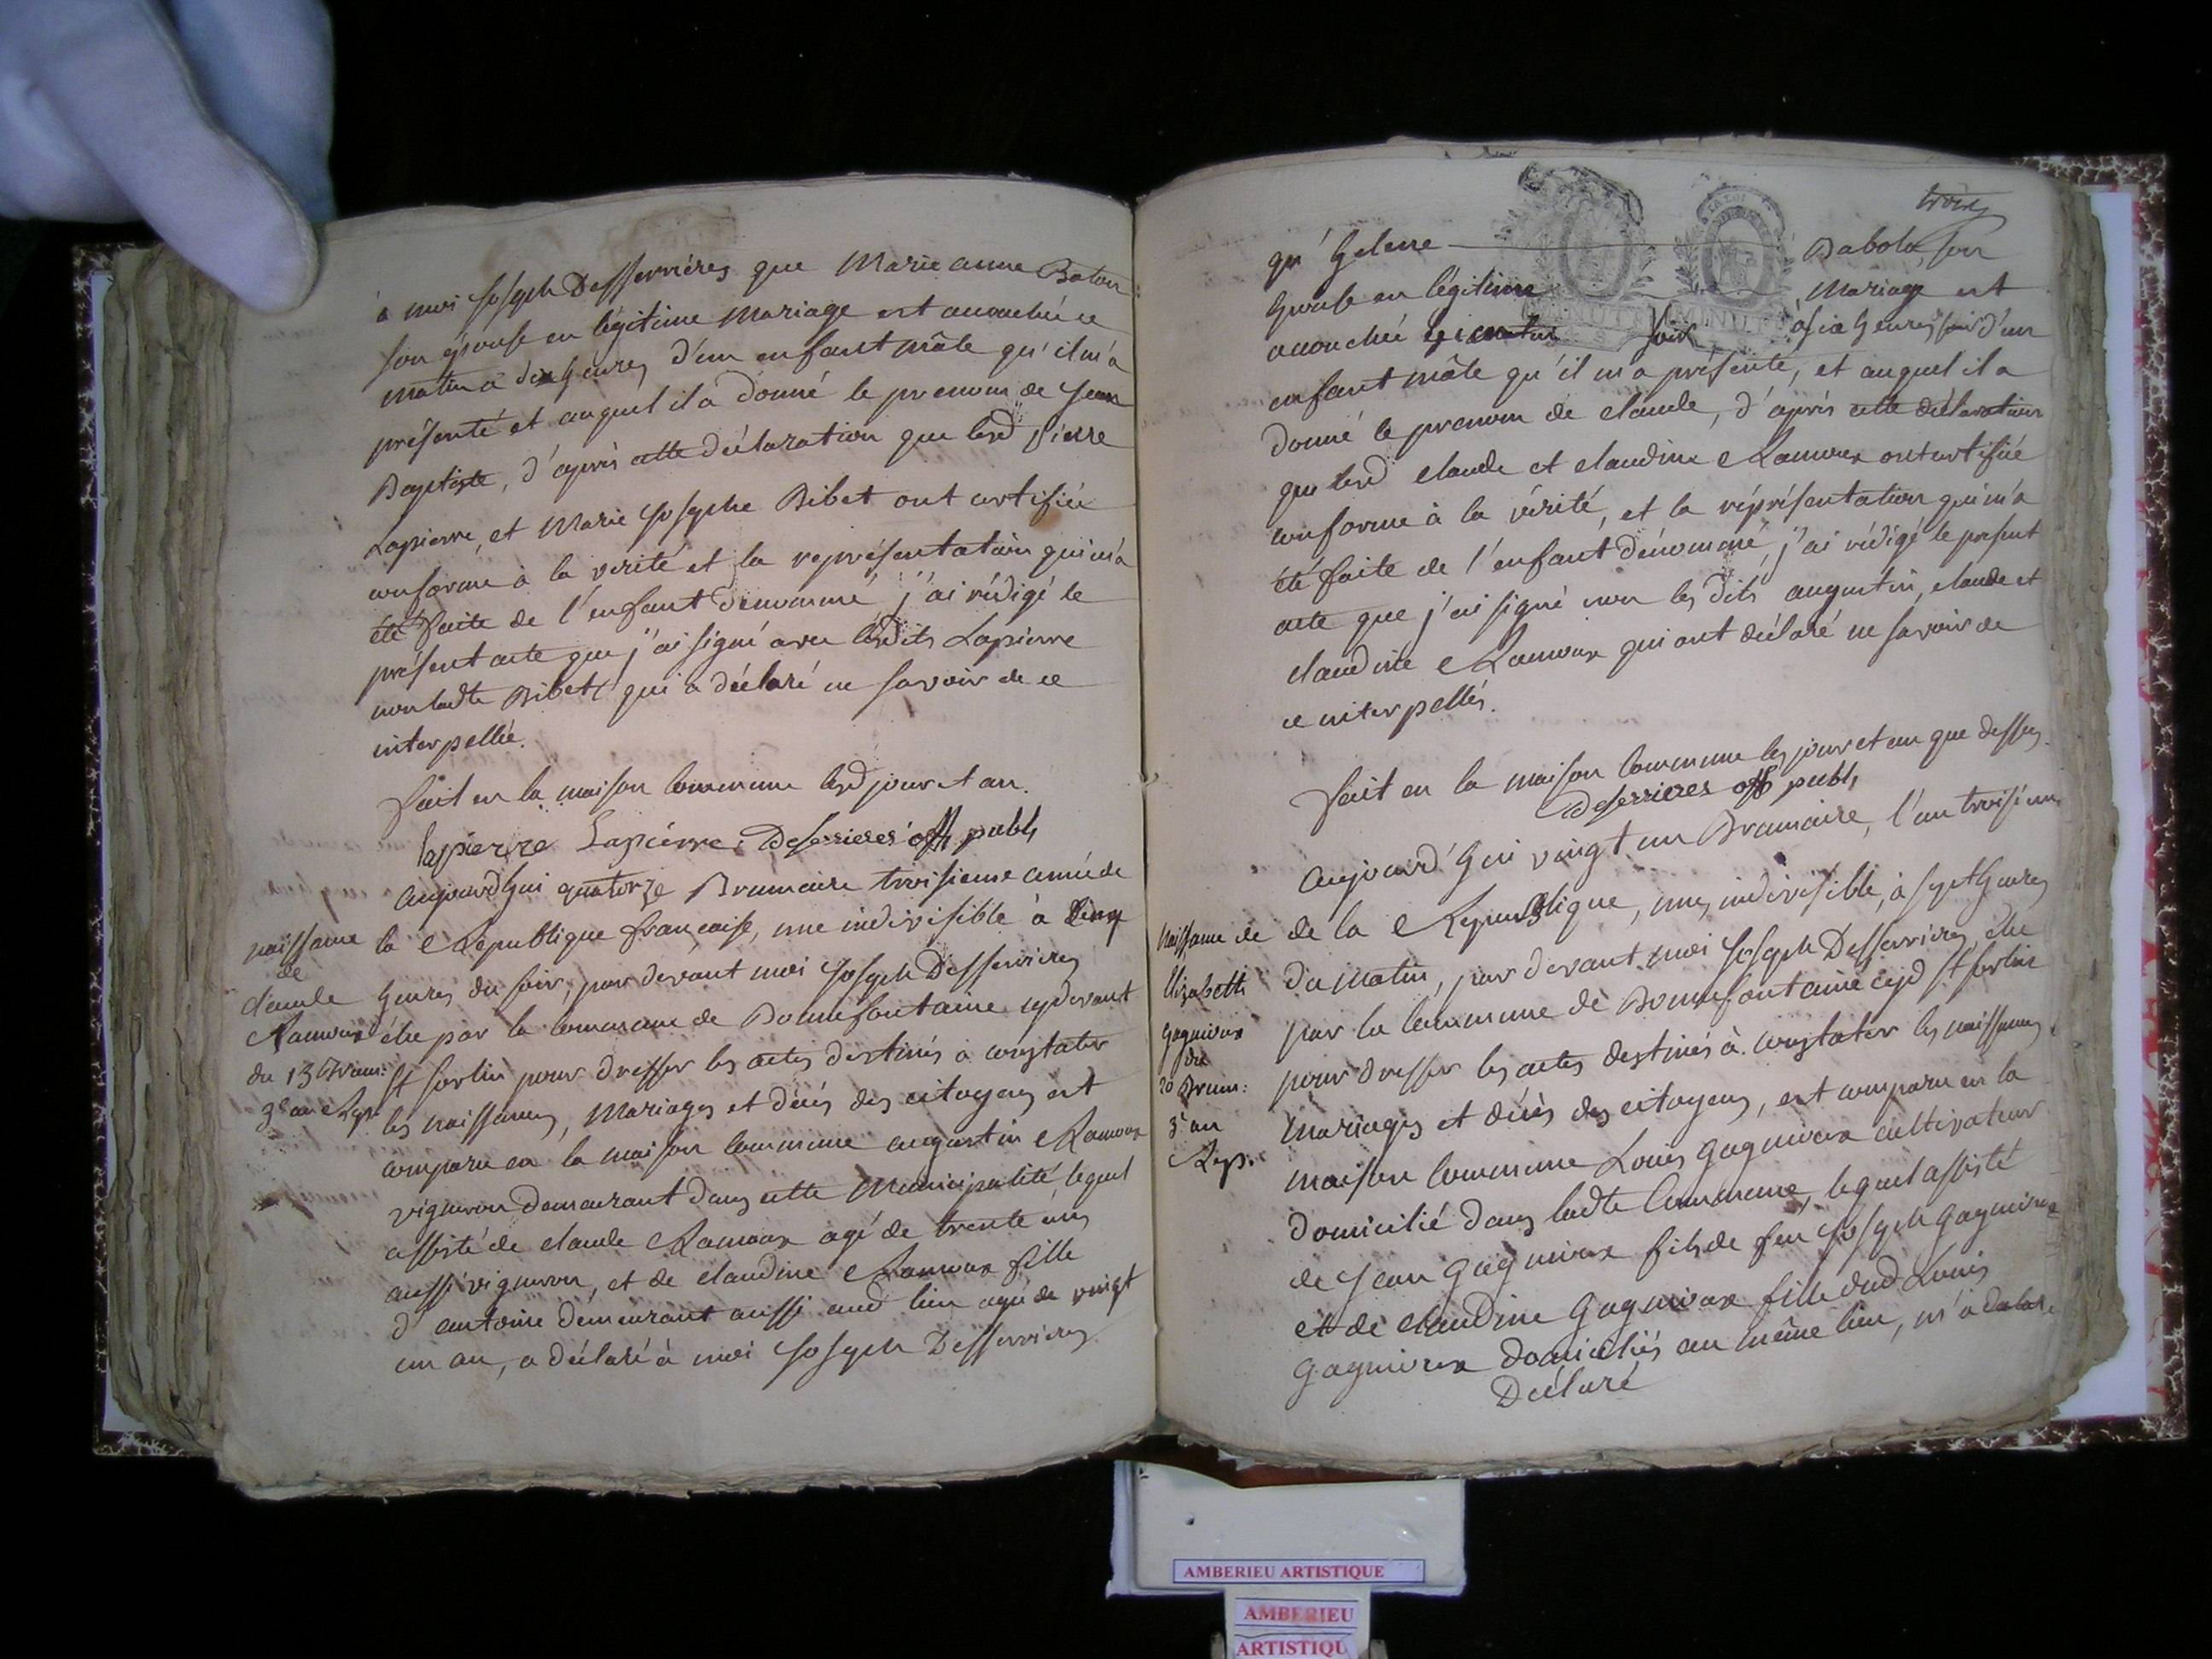 à moi Joseph Desserrières que Marie anne
son épouse en légitime Mariage est accouchée ce
matin à dix heures d'un enfant mâle qu'il m'a
présenté et auquel il a donné le prenom de Jean
Baptiste, d'après cette déclaration que lesd pierre
Lapierre, et Marie Josephe Bibet ont certifiée
conforme à la verité et la représentation qui m'a
été faite de l'enfant dénommé, j'ai rédigé le
présent acte que j'ai signé avec lesdits Lapierre
non ladte Bibet qui a déclaré ne savoir de ce
interpellée.
fait en la maison commune lesd jour et an.
lapierre Lapierre Deserrieres off publ,
naissance
de
claude
Ramoux
du 13 Brum:
3e an Rep.
aujourd'hui quatorze Brumaire troisieme année de
la République française, une indivisible à Cinq
heures du soir, par devant moi Joseph Desserrieres
élu par la commune de Bonnefontaine cydevant
st sorlin pour dresser les actes destinés à constater
les naissances, Mariages et décès des citoyens est
comparu en la maison commune augustin Ramoux
vigneron demeurant dans cette Municipalité, lequel
assisté de claude Ramoux agé de trente ans
aussi vigneron, et de claudine Ramoux fille
d'antoine demeurant aussi aud lieu agée de vingt
un an, a déclaré à moi Joseph Desserrieres
trois
qu'helene Babolat, son
épouse en légitime Mariage est
accouchée soir à six heures d'un
enfant mâle qu'il m'a présenté, et auquel il a
donné le prenom de claude, d'après cette déclaration
que lesd claude et claudine Ramoux ont certifiée
conforme à la vérité, et la réprésentation qui m'a
été faite de l'enfant dénommé, j'ai rédigé le présent
acte que j'ai signé non les dits augustin, claude et
claudine Ramoux qui ont déclaré ne savoir de
ce interpellés.
fait en la maison commune les jour et an que dessus.
Deserrieres off publ,
Naissance de
Elizabeth
Gagnieux
du
20 Brum:
3e an
Rep.
aujourd'hui vingt un Brumaire, l'an troisieme
de la Republique, une, indivisible, à sept heures
du Matin, par devant moi Joseph Desserrieres élu
par la commune de Bonnefontaine cyd st sorlin
pour dresser les actes destinés à constater les naissances
Mariages et décès des citoyens, est comparu en la
maison commune Louis Gagnieux cultivateur
domicilié dans ladte Commune, lequel assisté
de Jean Gagnieux fils de feu Joseph Gagnieux
et de claudine Gagnieux fille dud Louis
Gagnieux domiciliés au même lieu, m'a declaré
Déclaré
AMBERIEU ARTISTIQUE
AMBERIEU
ARTISTIQU